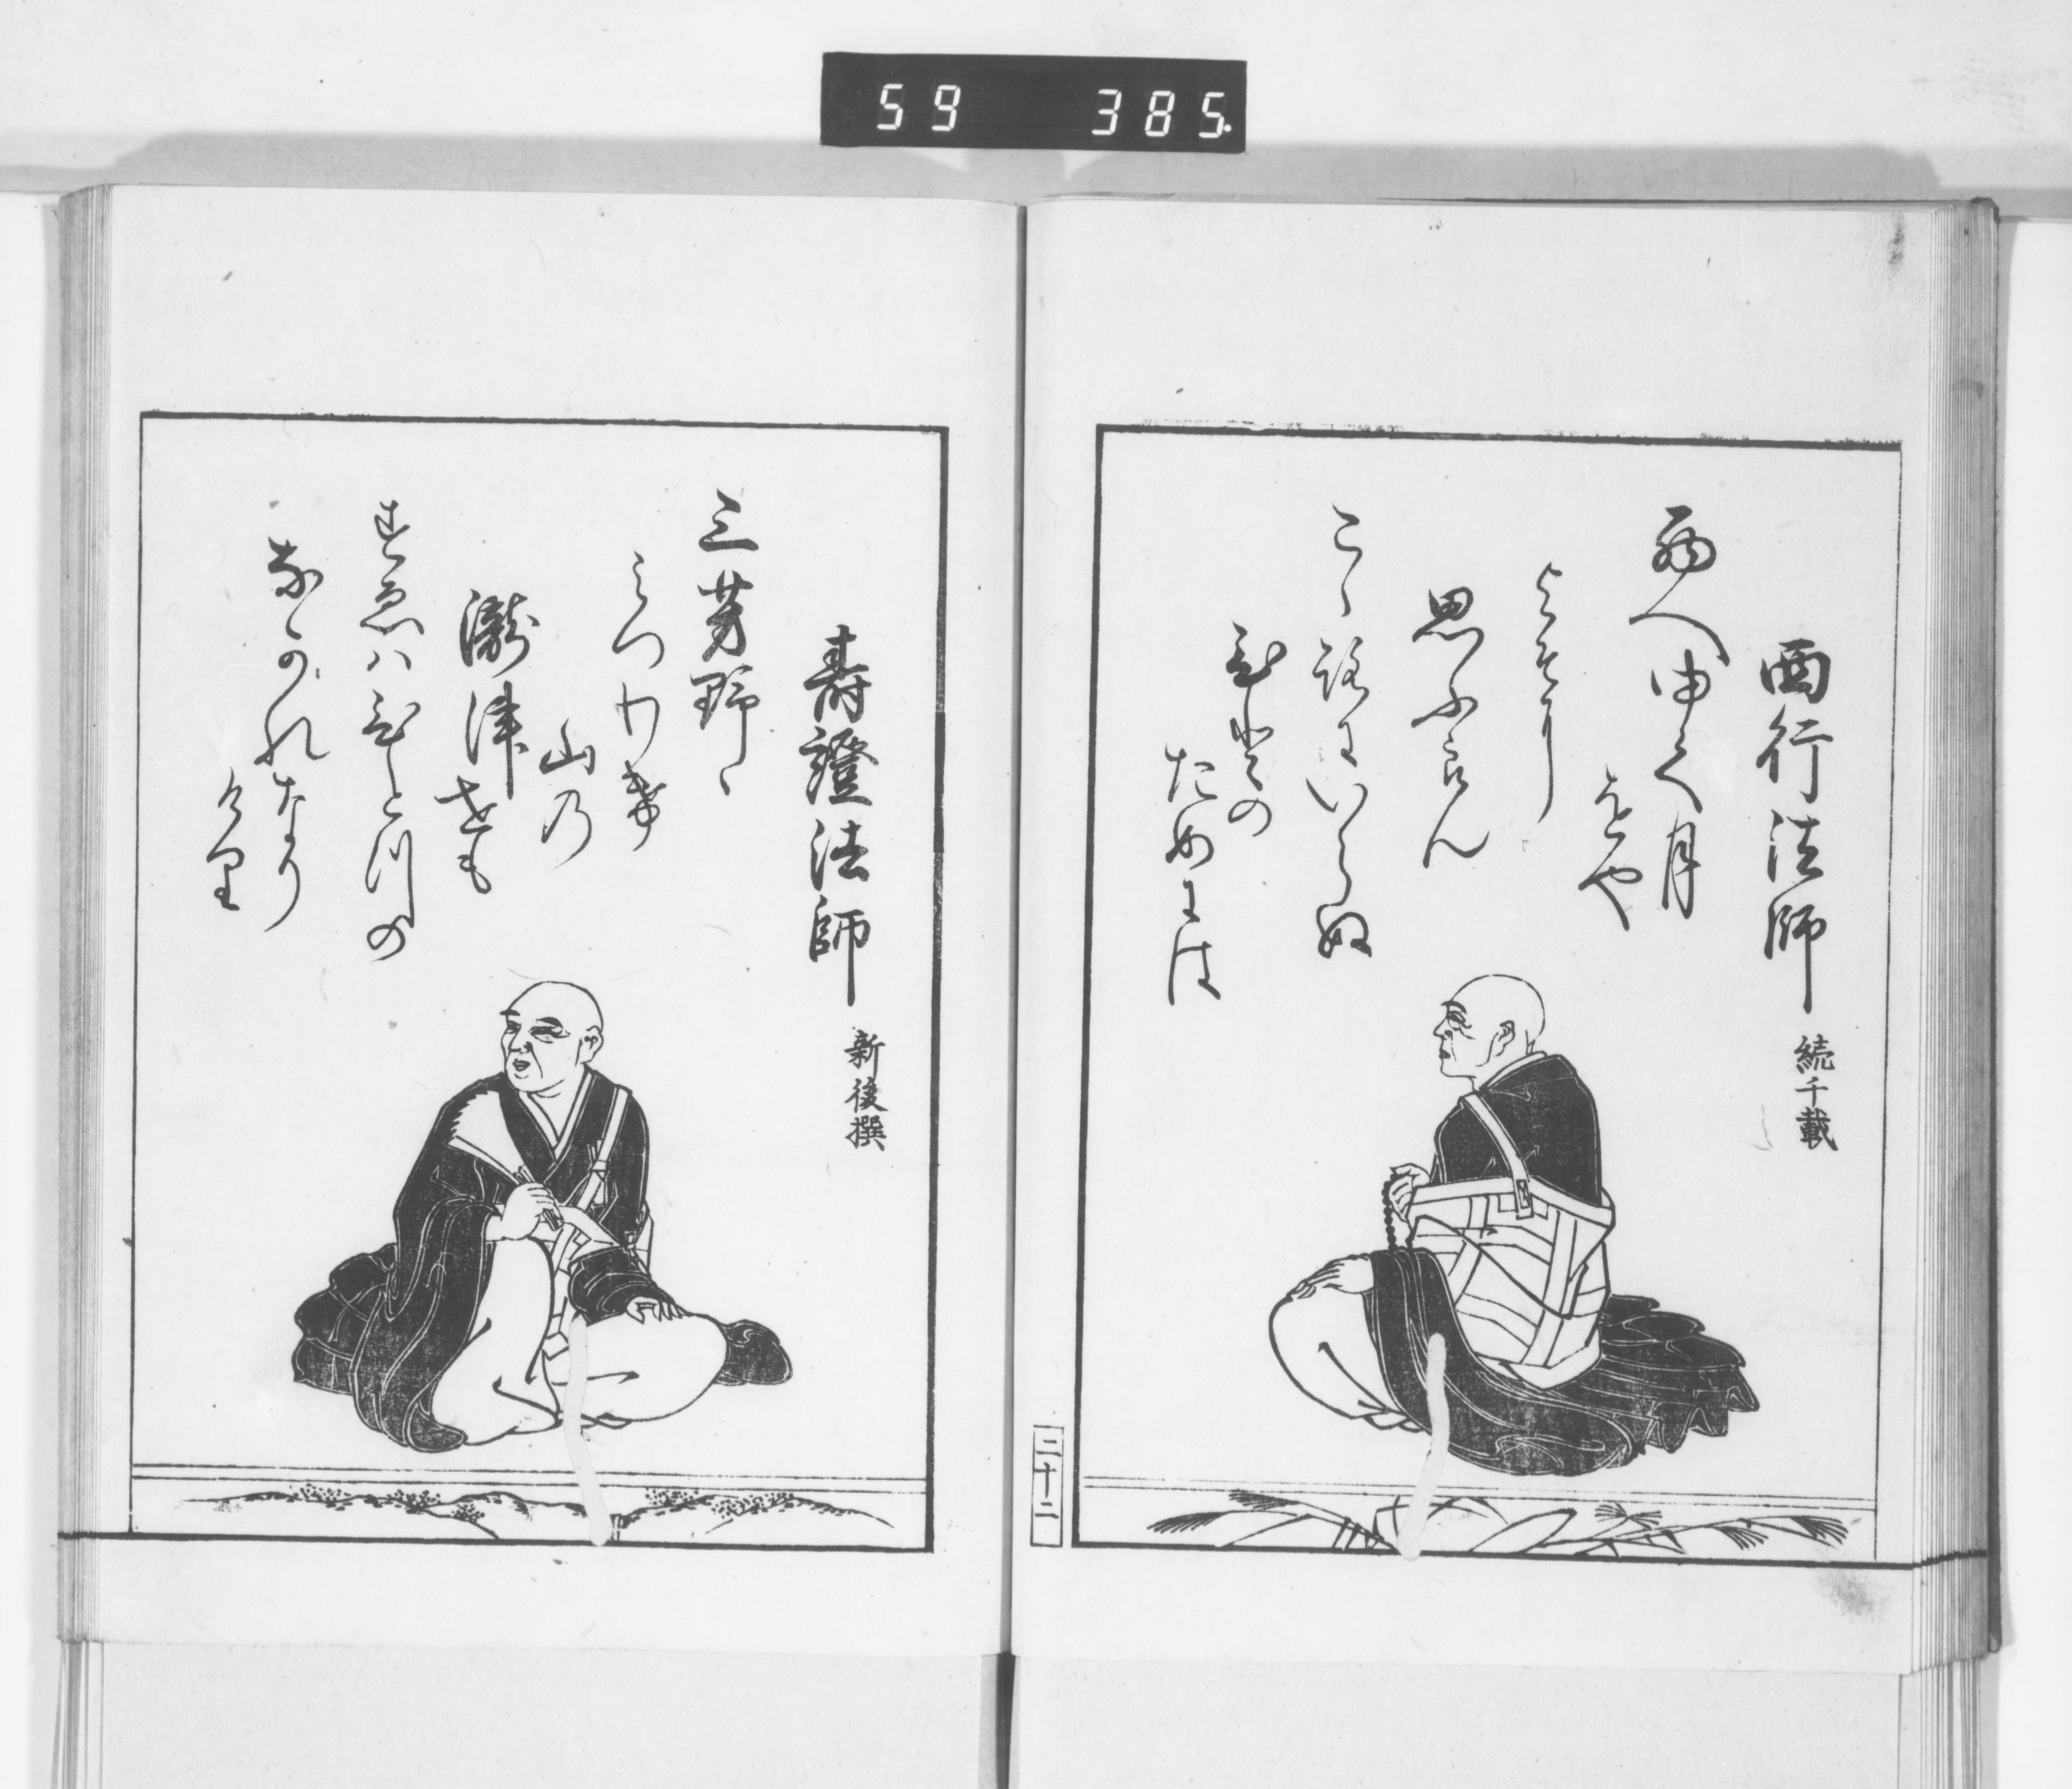 59 385
西行法師 続千載
西へ由く月
をや
よそに
思ふ良ん
こゝ路にいらぬ
ひとの
ためには
二十二
壽證法師 新後撰
三芳野ゝ
みつわけ
山乃
瀧津せも
すゑハひとつの
なかれなり
けり